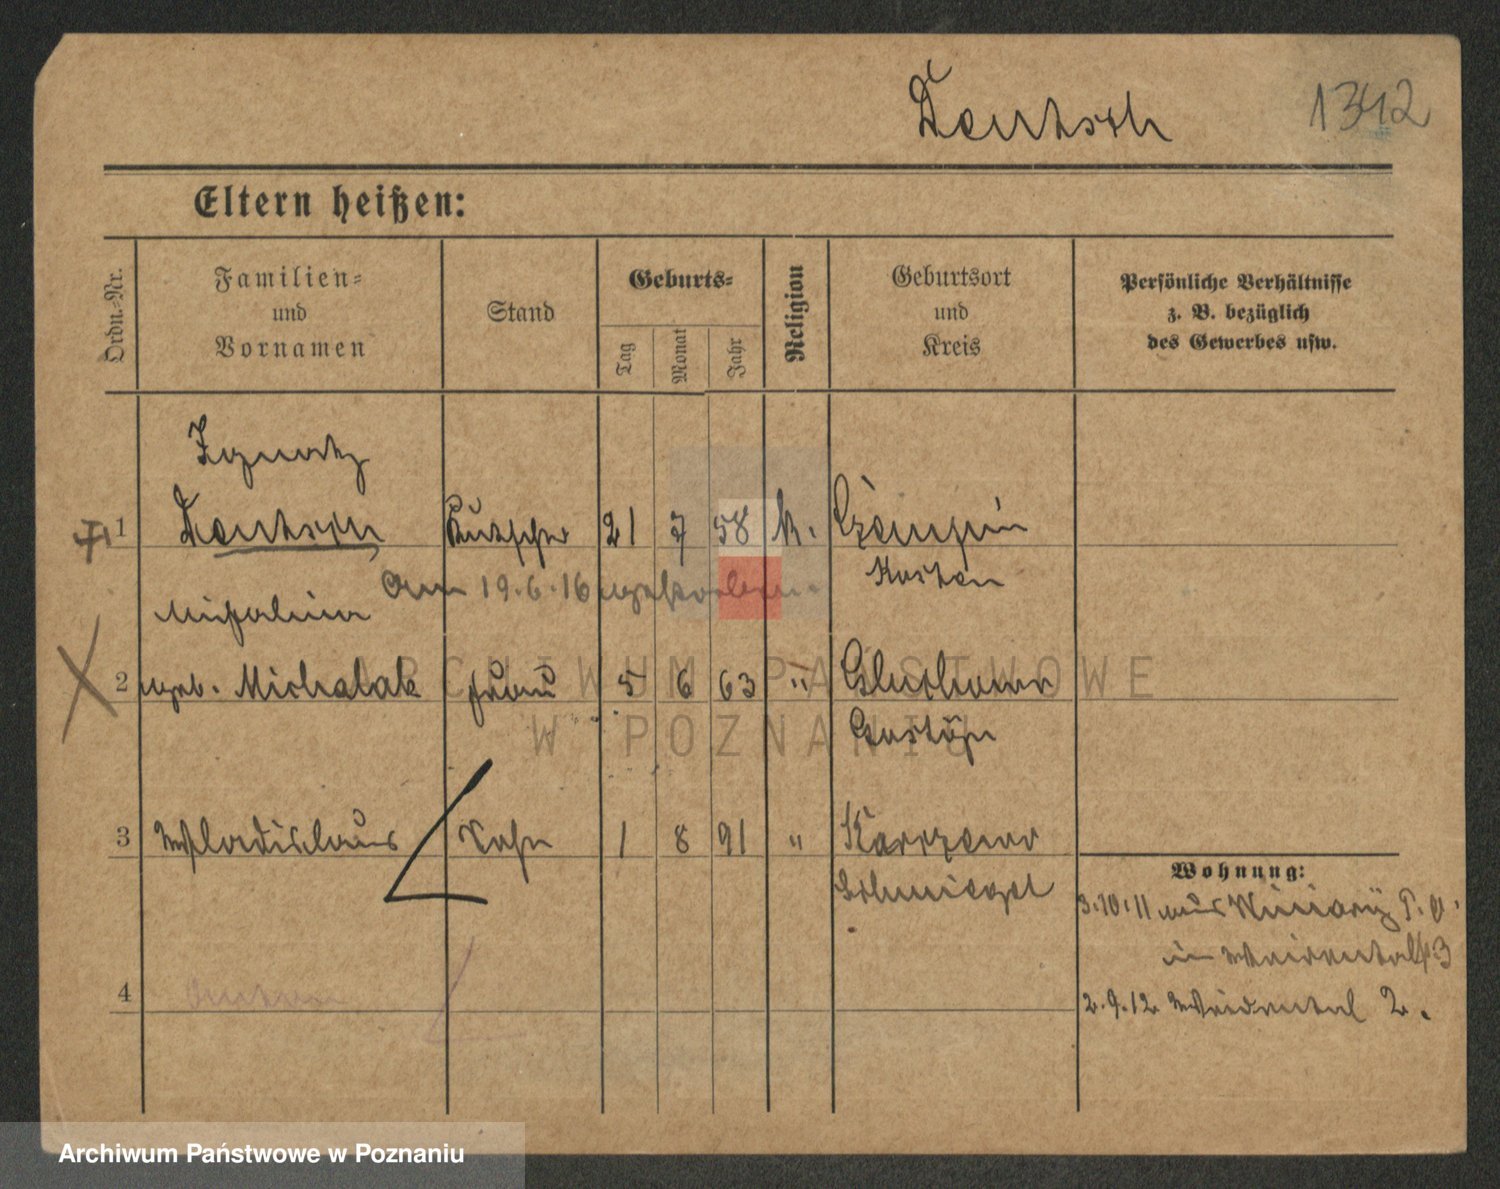 Deutsch
1342
Eltern heißen:
Ordn.=Nr.
Familien=
und
Vornamen
Stand
Geburts=
Tag
Monat
Jahr
Religion
Geburtsort
und
Kreis
Persönliche Verhältnisse
z. B. bezüglich
des Gewerbes usw.
Ignatz
1 Deutsch Kutscher 21 7 58 k. Czempin
Kosten
am 19.6.16 gestorben.
2 geb. Michalak Frau 5 6 63 "
Gostyn
3 Wladislaus Sohn 1 8 91 "
Schmiegel
Wohnung:
3.10.11 aus
in 3
4
2.9.12 2.
ARCHIWUM PAŃSTWOWE
W POZNANIU
Archiwum Państwowe w Poznaniu